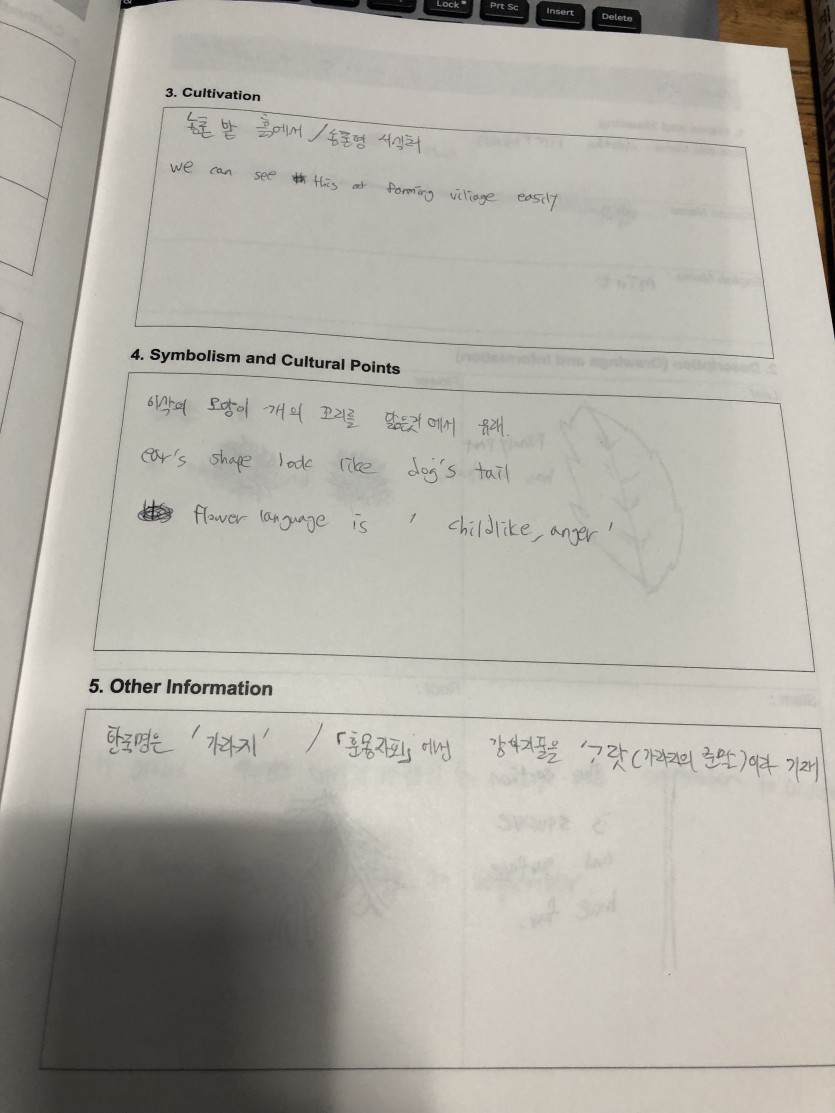 Lock
Prt Sc
Insert
Delete
3. Cultivation
농촌 밭 흙에서 / 농촌형 서식처
we can see this at farming village easily
4. Symbolism and Cultural Points
이삭의 모양이 개의 꼬리를 닮은것에서 유래.
ear's shape look like dog's tail
flower language is ' childlike, anger '
5. Other Information
한국명은 '가라지' / 「훈몽자회」에선 강아지풀을 랏(가라지의 준말)이라 기재